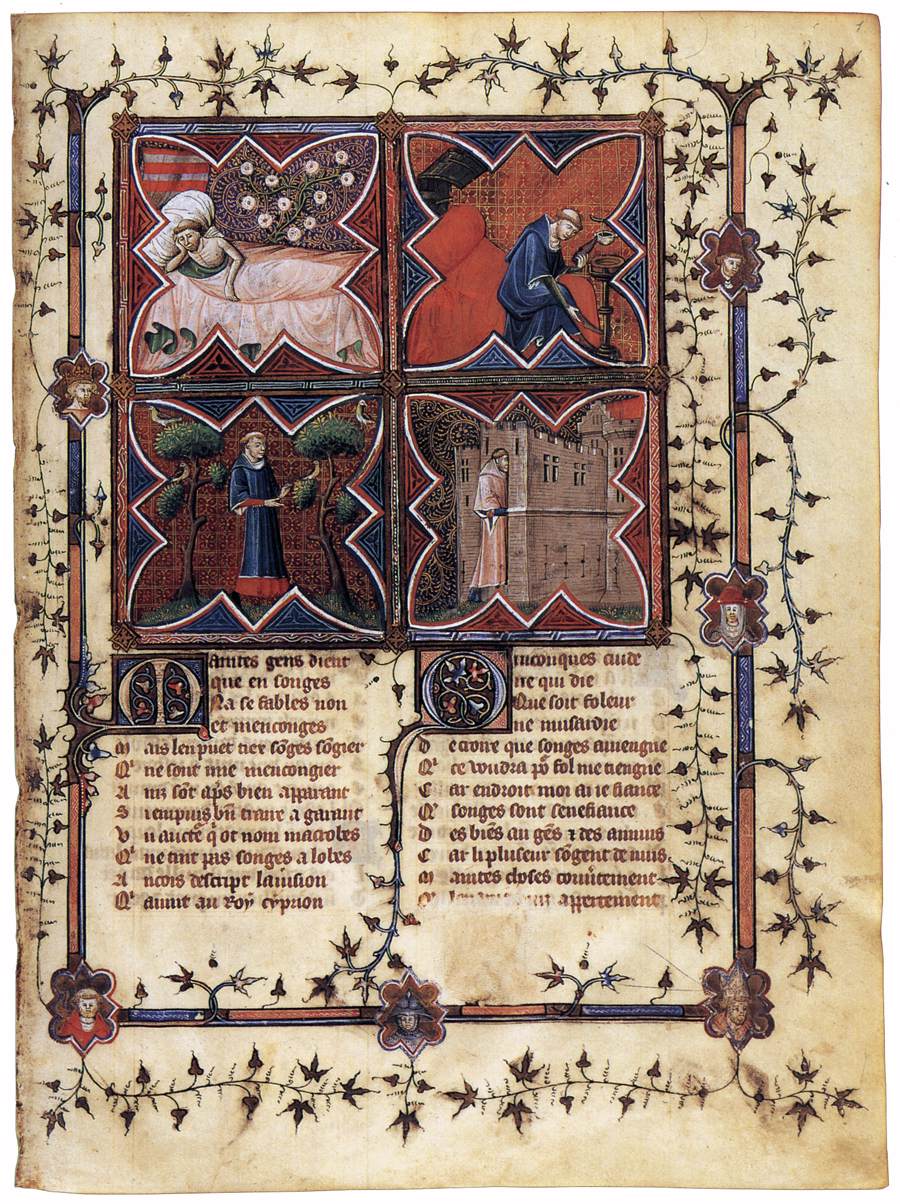 1
Maintes gens dient
que en songes
Na se fables non
et menconges
Mais len puet tiex sōges sōgier
Qͥ ne sont mie mencongier
Ainz sōt ap̄s bien apparant
Si en puis bn̄ traire a garant
Un aucte᷑ qͥ ot nom macrobes
Qͥ ne tint pas songes a lobes
Ancois descript la uision
Qͥ auint au Roy cyprion
Quiconques cuide
ne qui die
Que soit foleur
ne musardie
De croire que songes auiengne
Qͥ ce uoudra pͦ fol me tiengne
Car endroit moi ai ie fiance
Qͤ songes sont senefiance
Des biēs au gēs ⁊ des anuiis
Car li pluseur sōgent de nuis
Maintes choses couu̾tement
appertement